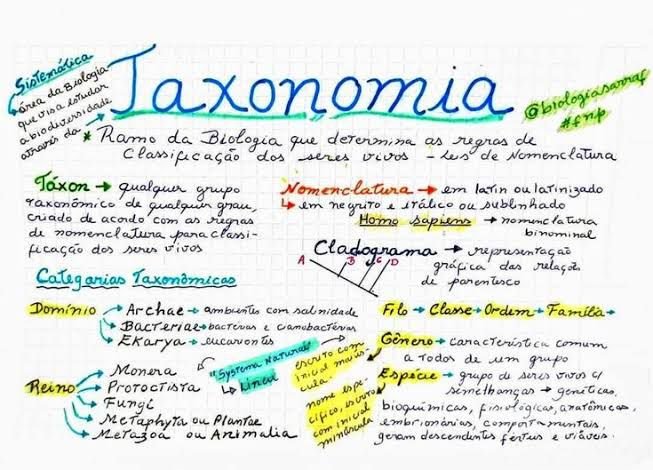 Sistemática
área da Biologia
que visa estudar
a biodiversidade
através da
Taxonomia
@biologiasarraf
#fnp
* Ramo da Biologia que determina as regras de
classificação dos seres vivos - Leis de Nomenclatura
Táxon → qualquer grupo
taxonômico de qualquer grau,
criado de acordo com as regras
de nomenclatura para classi-
ficação dos seres vivos
Nomenclatura → em latin ou latinizado
→ em negrito e itálico ou sublinhado
Homo sapiens → nomenclatura
binominal
Cladograma → representação
gráfica das relações
de parentesco
A B C D
Categorias Taxonômicas
Domínio → Archae → ambientes com salinidade
→ Bacteriae → bactérias e cianobactérias
→ Ekarya → eucariontes
Reino → Monera
→ Protoctista
→ Fungi
→ Metaphyta ou Plantae
→ Metazoa ou Animalia
"Systema Naturae"
↳ Lineu
Filo → Classe → Ordem → Família →
Gênero → característica comum
a todos de um grupo
escrito com
inicial maiús-
cula.
Espécie → grupo de seres vivos c/
semelhanças → genéticas,
bioquímicas, fisiológicas, anatômicas,
embrionárias, comportamentais,
geram descendentes férteis e viáveis.
nome espe-
cífico, escrito
com inicial
minúscula